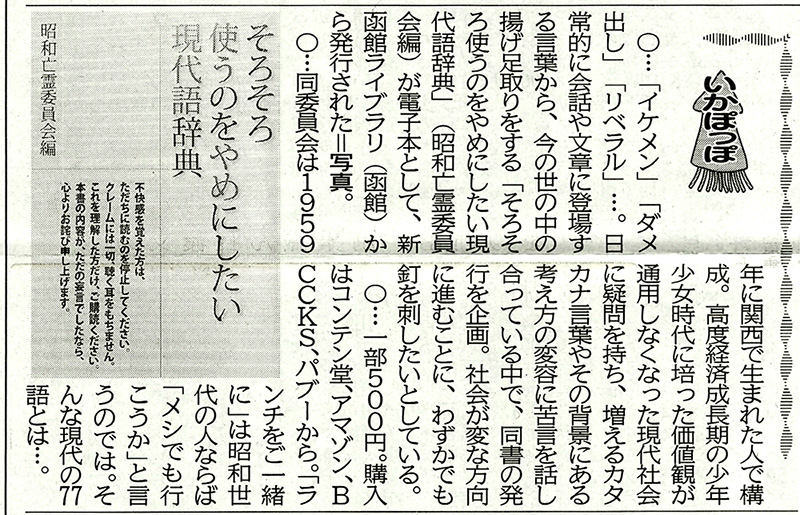 いかぽっぽ
〇…「イケメン」「ダメ
出し」「リベラル」…。日
常的に会話や文章に登場す
る言葉から、今の世の中の
揚げ足取りをする「そろそ
ろ使うのをやめにしたい現
代語辞典」(昭和亡霊委員
会編)が電子本として、新
函館ライブラリ(函館)か
ら発行された=写真。
〇…同委員会は1959
年に関西で生まれた人で構
成。高度経済成長期の少年
少女時代に培った価値観が
通用しなくなった現代社会
に疑問を持ち、増えるカタ
カナ言葉やその背景にある
考え方の変容に苦言を話し
合っている中で、同書の発
行を企画。社会が変な方向
に進むことに、わずかでも
釘を刺したいとしている。
〇…一部500円。購入
はコンテン堂、アマゾン、B
CCKS、パブーから。「ラ
ンチをご一緒
に」は昭和世
代の人ならば
「メシでも行
こうか」と言
うのでは。そ
んな現代の77
語とは…。
そろそろ
使うのをやめにしたい
現代語辞典
昭和亡霊委員会編
不快感を覚えた方は、
ただちに読むのを停止してください。
クレームには一切、聴く耳をもちません。
これを理解した方だけ、ご購読ください。
本書の内容が、ただの妄言でしたなら、
心よりお詫び申し上げます。